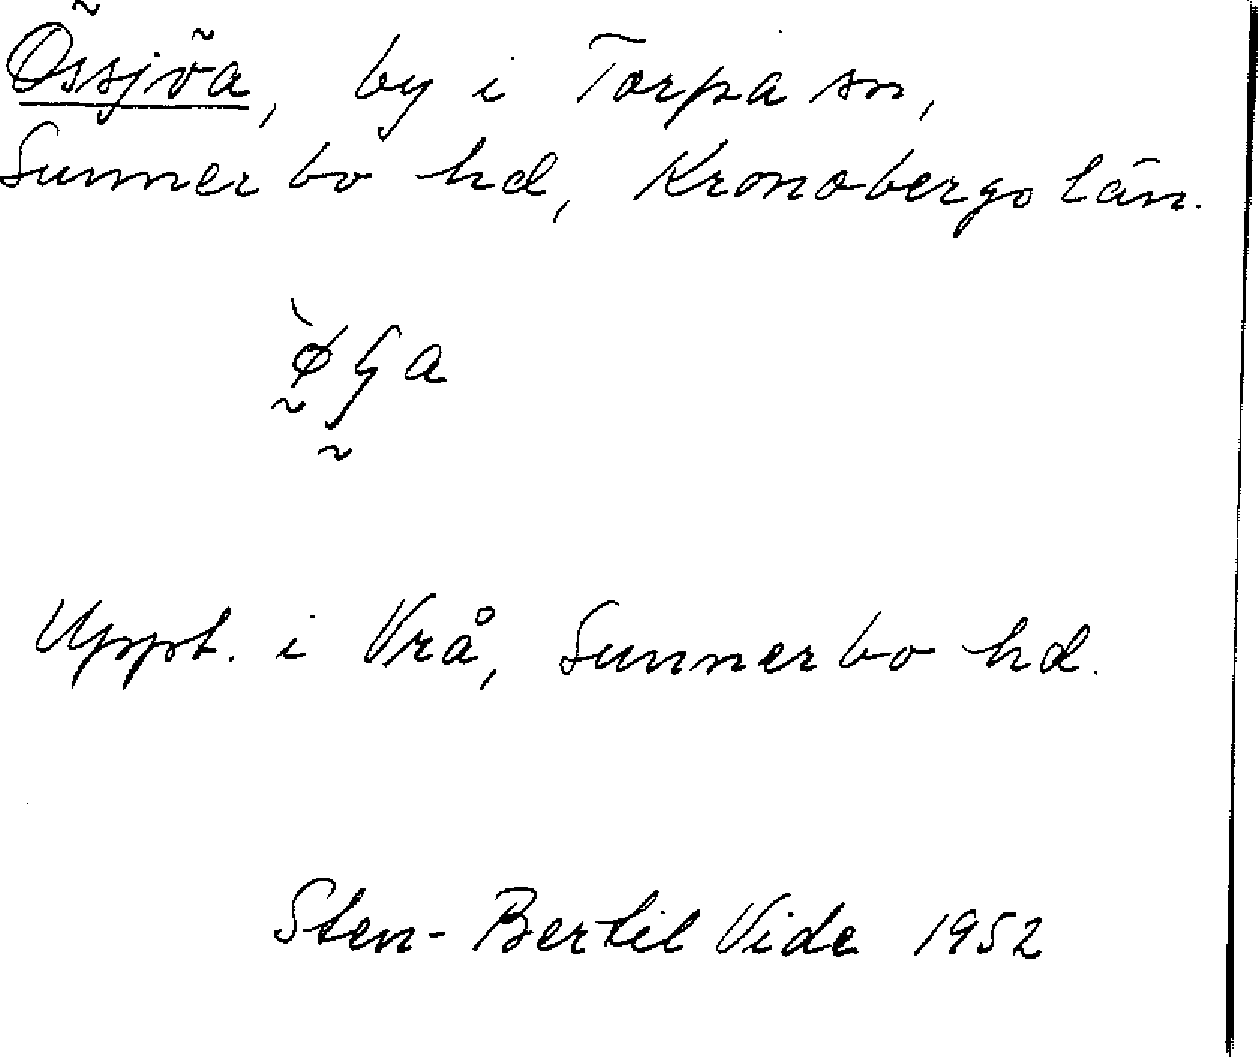 Össjöa, by i Torpa sn,
Sunnerbo hd, Kronobergs län.
Uppt. i Vrå, Sunnerbo hd.
Sten-Bertil Vide 1952